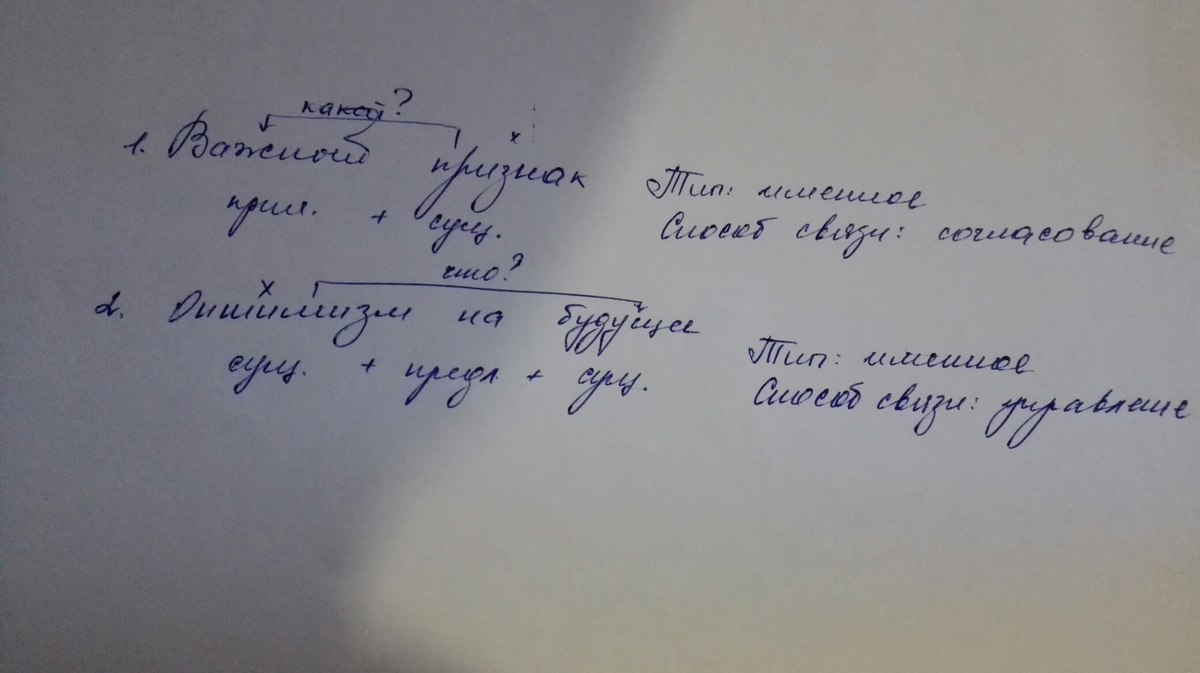 какой?
1. Важной признак
прил. + сущ.
Тип: именное
Способ связи: согласование
что?
2. Оптимизм на будуще
сущ. + предл + сущ.
Тип: именное
Способ связи: управление